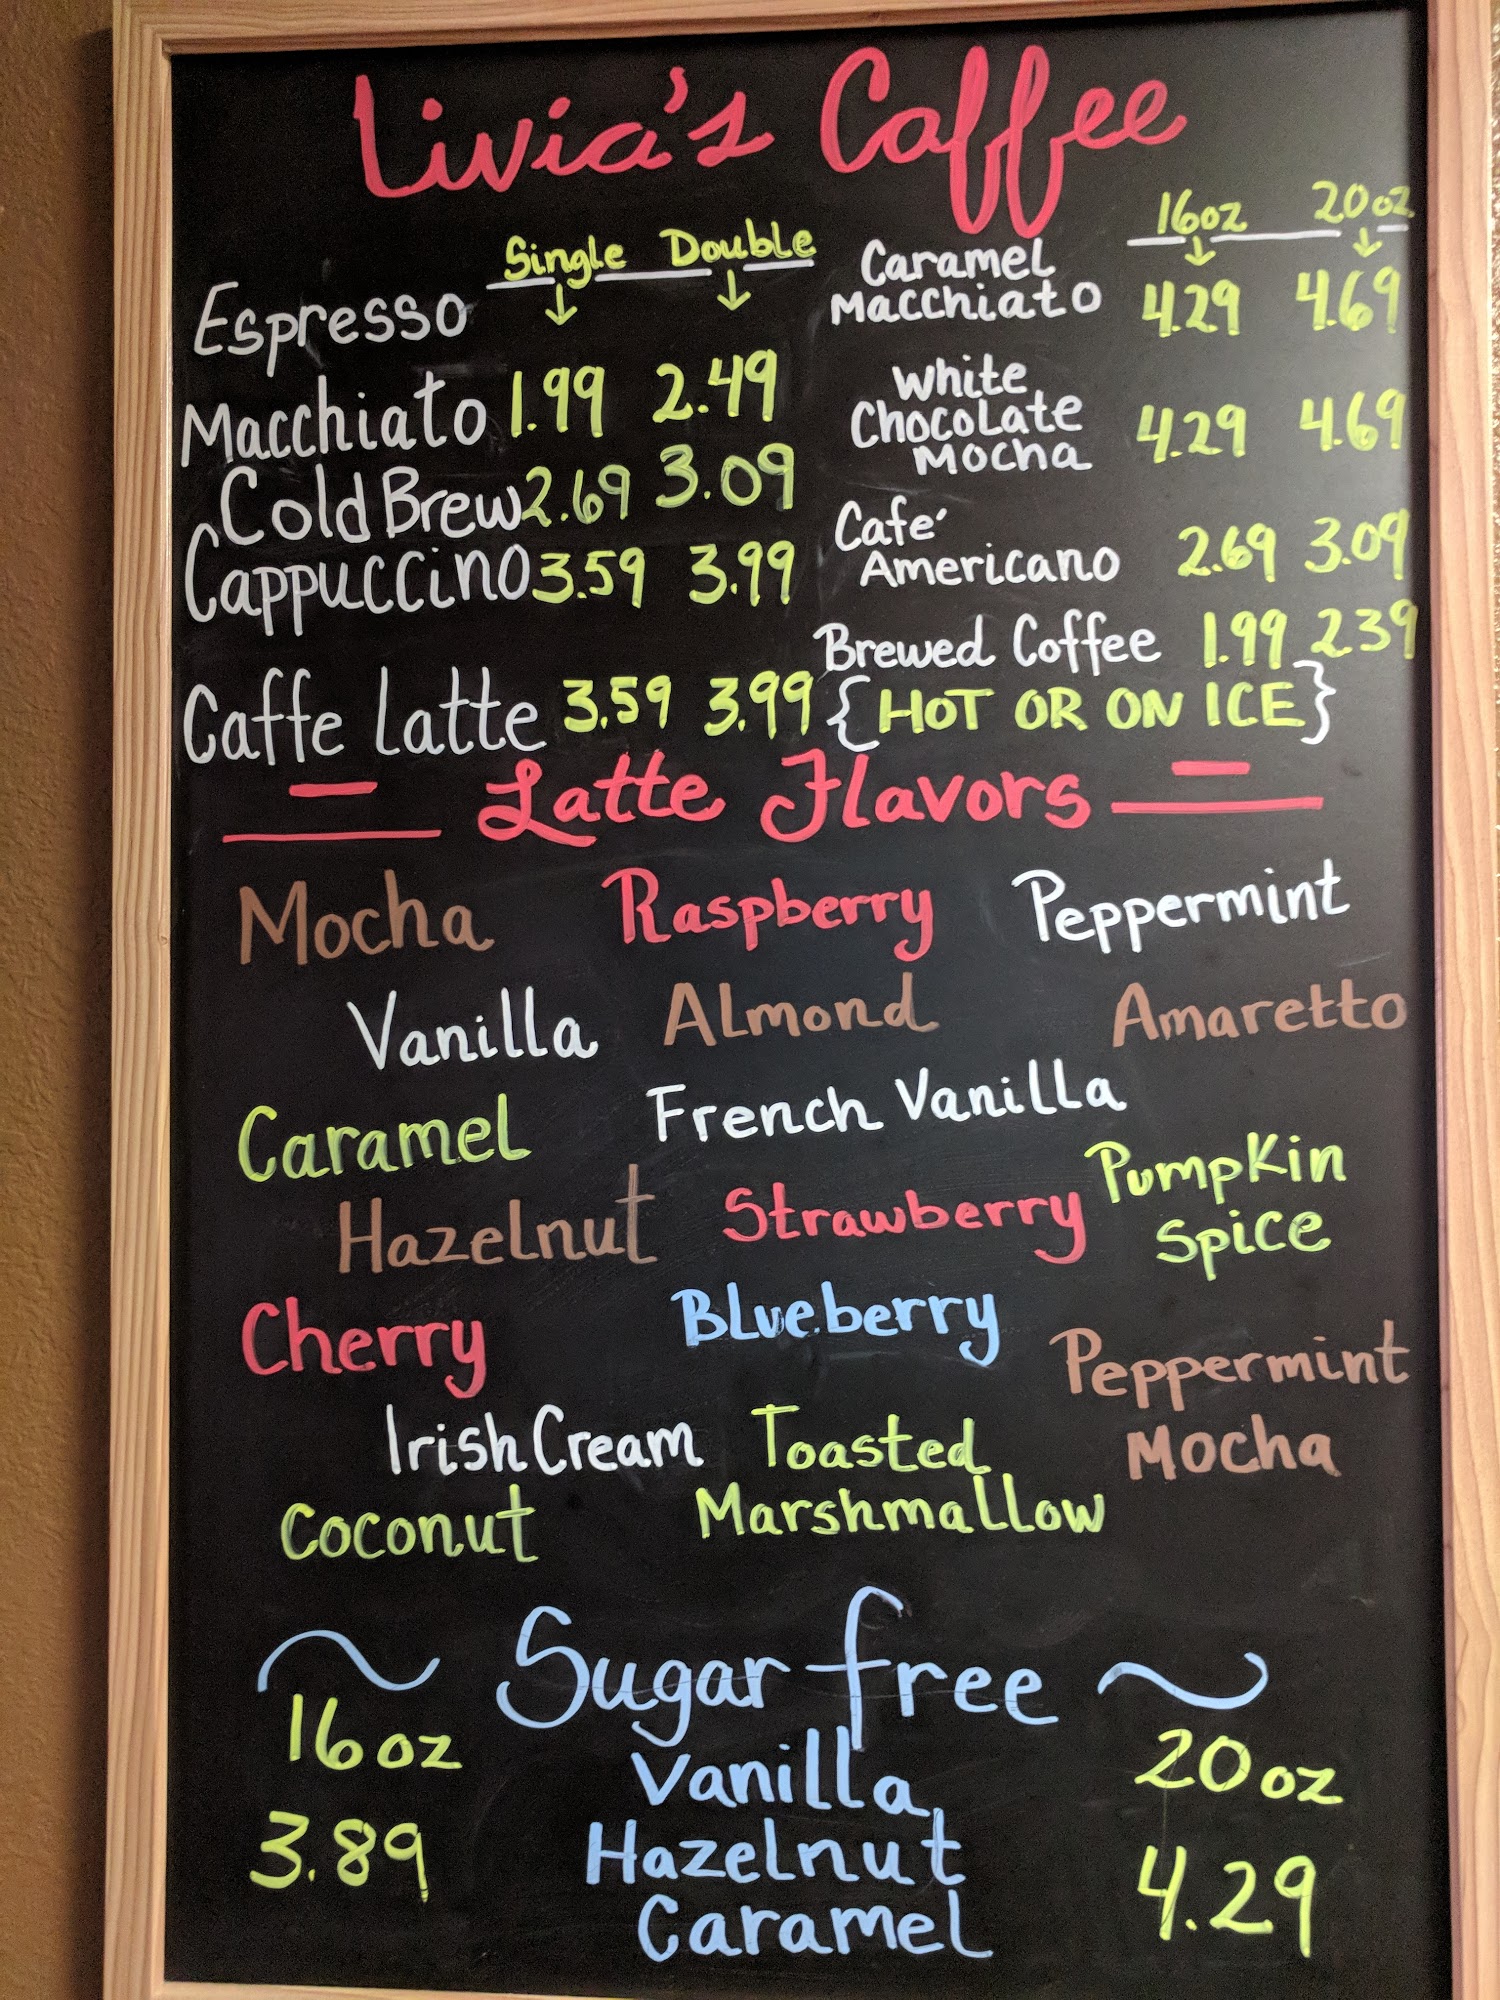 Livia's Coffee
Single Double
Espresso
Macchiato 1.99 2.49
Cold Brew 2.69 3.09
Cappuccino 3.59 3.99
Caffe Latte 3.59 3.99
16oz 20oz
Caramel
Macchiato 4.29 4.69
White
Chocolate
Mocha 4.29 4.69
Cafe´
Americano 2.69 3.09
Brewed Coffee 1.99 2.39
{HOT OR ON ICE}
Latte Flavors
Mocha Raspberry Peppermint
Vanilla Almond Amaretto
Caramel French Vanilla
Hazelnut Strawberry Pumpkin
Spice
Cherry Blueberry Peppermint
Mocha
Irish Cream Toasted
Marshmallow
Coconut
Sugar free
16oz Vanilla, 20oz
3.89 Hazelnut 4.29
Caramel